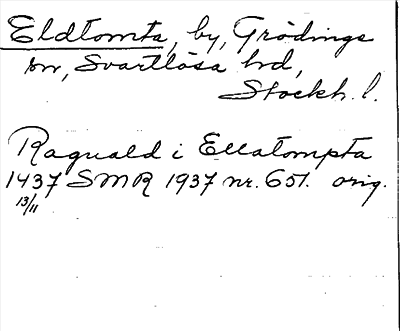 Eldtomta, by, Grödinge
sn, Svartlösa hd,
Stockh. l.
Raguald i Ellatompta
1437 SMR 1937 nr. 651. orig.
13/11